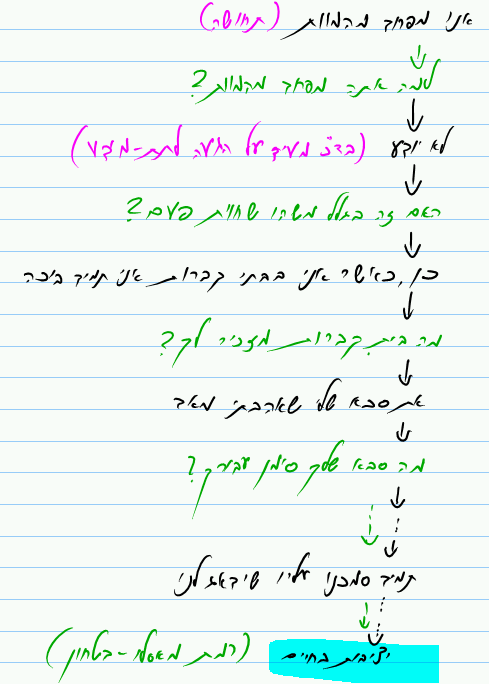 אני מפחד מהמוות (תחושה)
למה אתה מפחד מהמוות?
לא יודע (בד"כ מעיד על הגעה לתת-מודע)
האם זה בגלל משהו שחווית פעם?
כן, כאשר אני בבתי קברות אני תמיד בוכה
מה בית קברות מזכיר לך?
את סבא שלי שאהבתי מאוד
מה סבא שלך סימן עבורך?
תמיד סמכנו עליו שידאג לנו
יציבות בחיים (רמת מאסלו-בטחון)